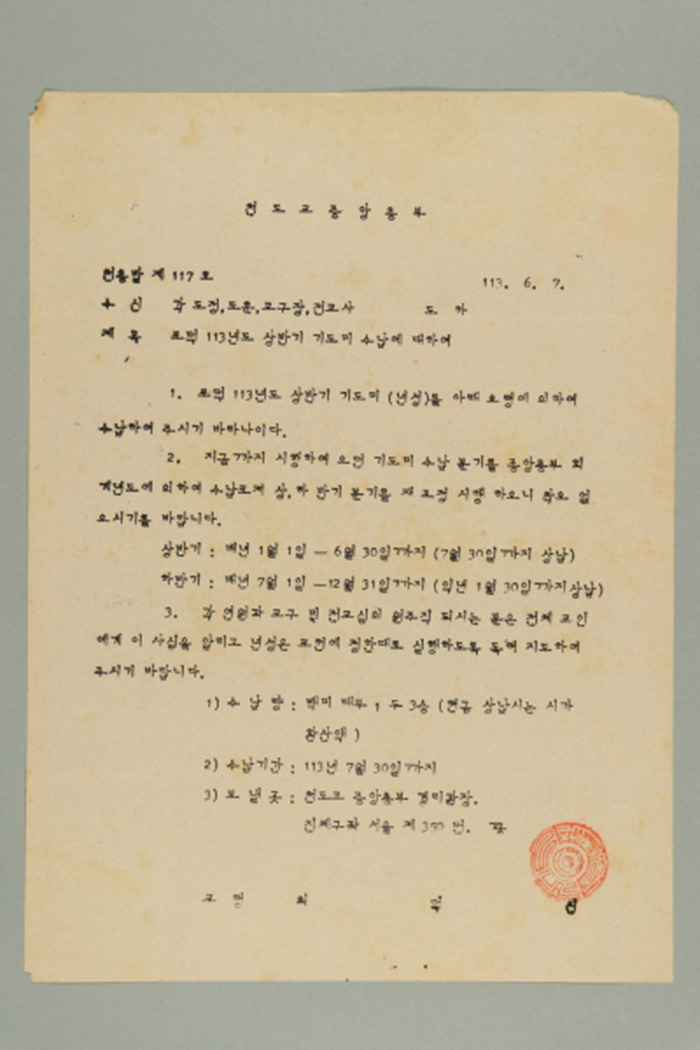 천 도 교 중 앙 총 부
천총발 제 117 호
113. 6. 7.
수 신 각 도정,도훈,교구장,전교사 도 하
제 목 포덕 113년도 상반기 기도미 수납에 대하여
1. 포덕 113년도 상반기 기도미 (년성)를 아래 요령에 의하여
수납하여 주시기 바라나이다.
2. 지금까지 시행하여 오던 기도미 수납 분기를 중앙총부 회
계년도에 의하여 수납토록 상,하반기 분기를 재 조정 시행 하오니 착오 없
으시기를 바랍니다.
상반기 : 매년 1월 1일 — 6월 30일까지 (7월 30일까지 상납)
하반기 : 매년 7월 1일 —12월 31일까지 (익년 1월 30일까지상납)
3. 각 연원과 교구 및 전교실의 원주직 되시는 분은 전체 교인
에게 이 사실을 알리고 년성은 교헌에 정한대로 실행하도록 독려 지도하여
주시기 바랍니다.
1) 수 납 량 : 백미 매두 1 두 3승 (현금 상납시는 시가
환산액 )
2) 수납기간 : 113년 7월 30일까지
3) 보 낼 곳 : 천도교 중앙총부 경리관장.
진체구좌 서울 제 350 번. 끝
교 령 최 덕 신